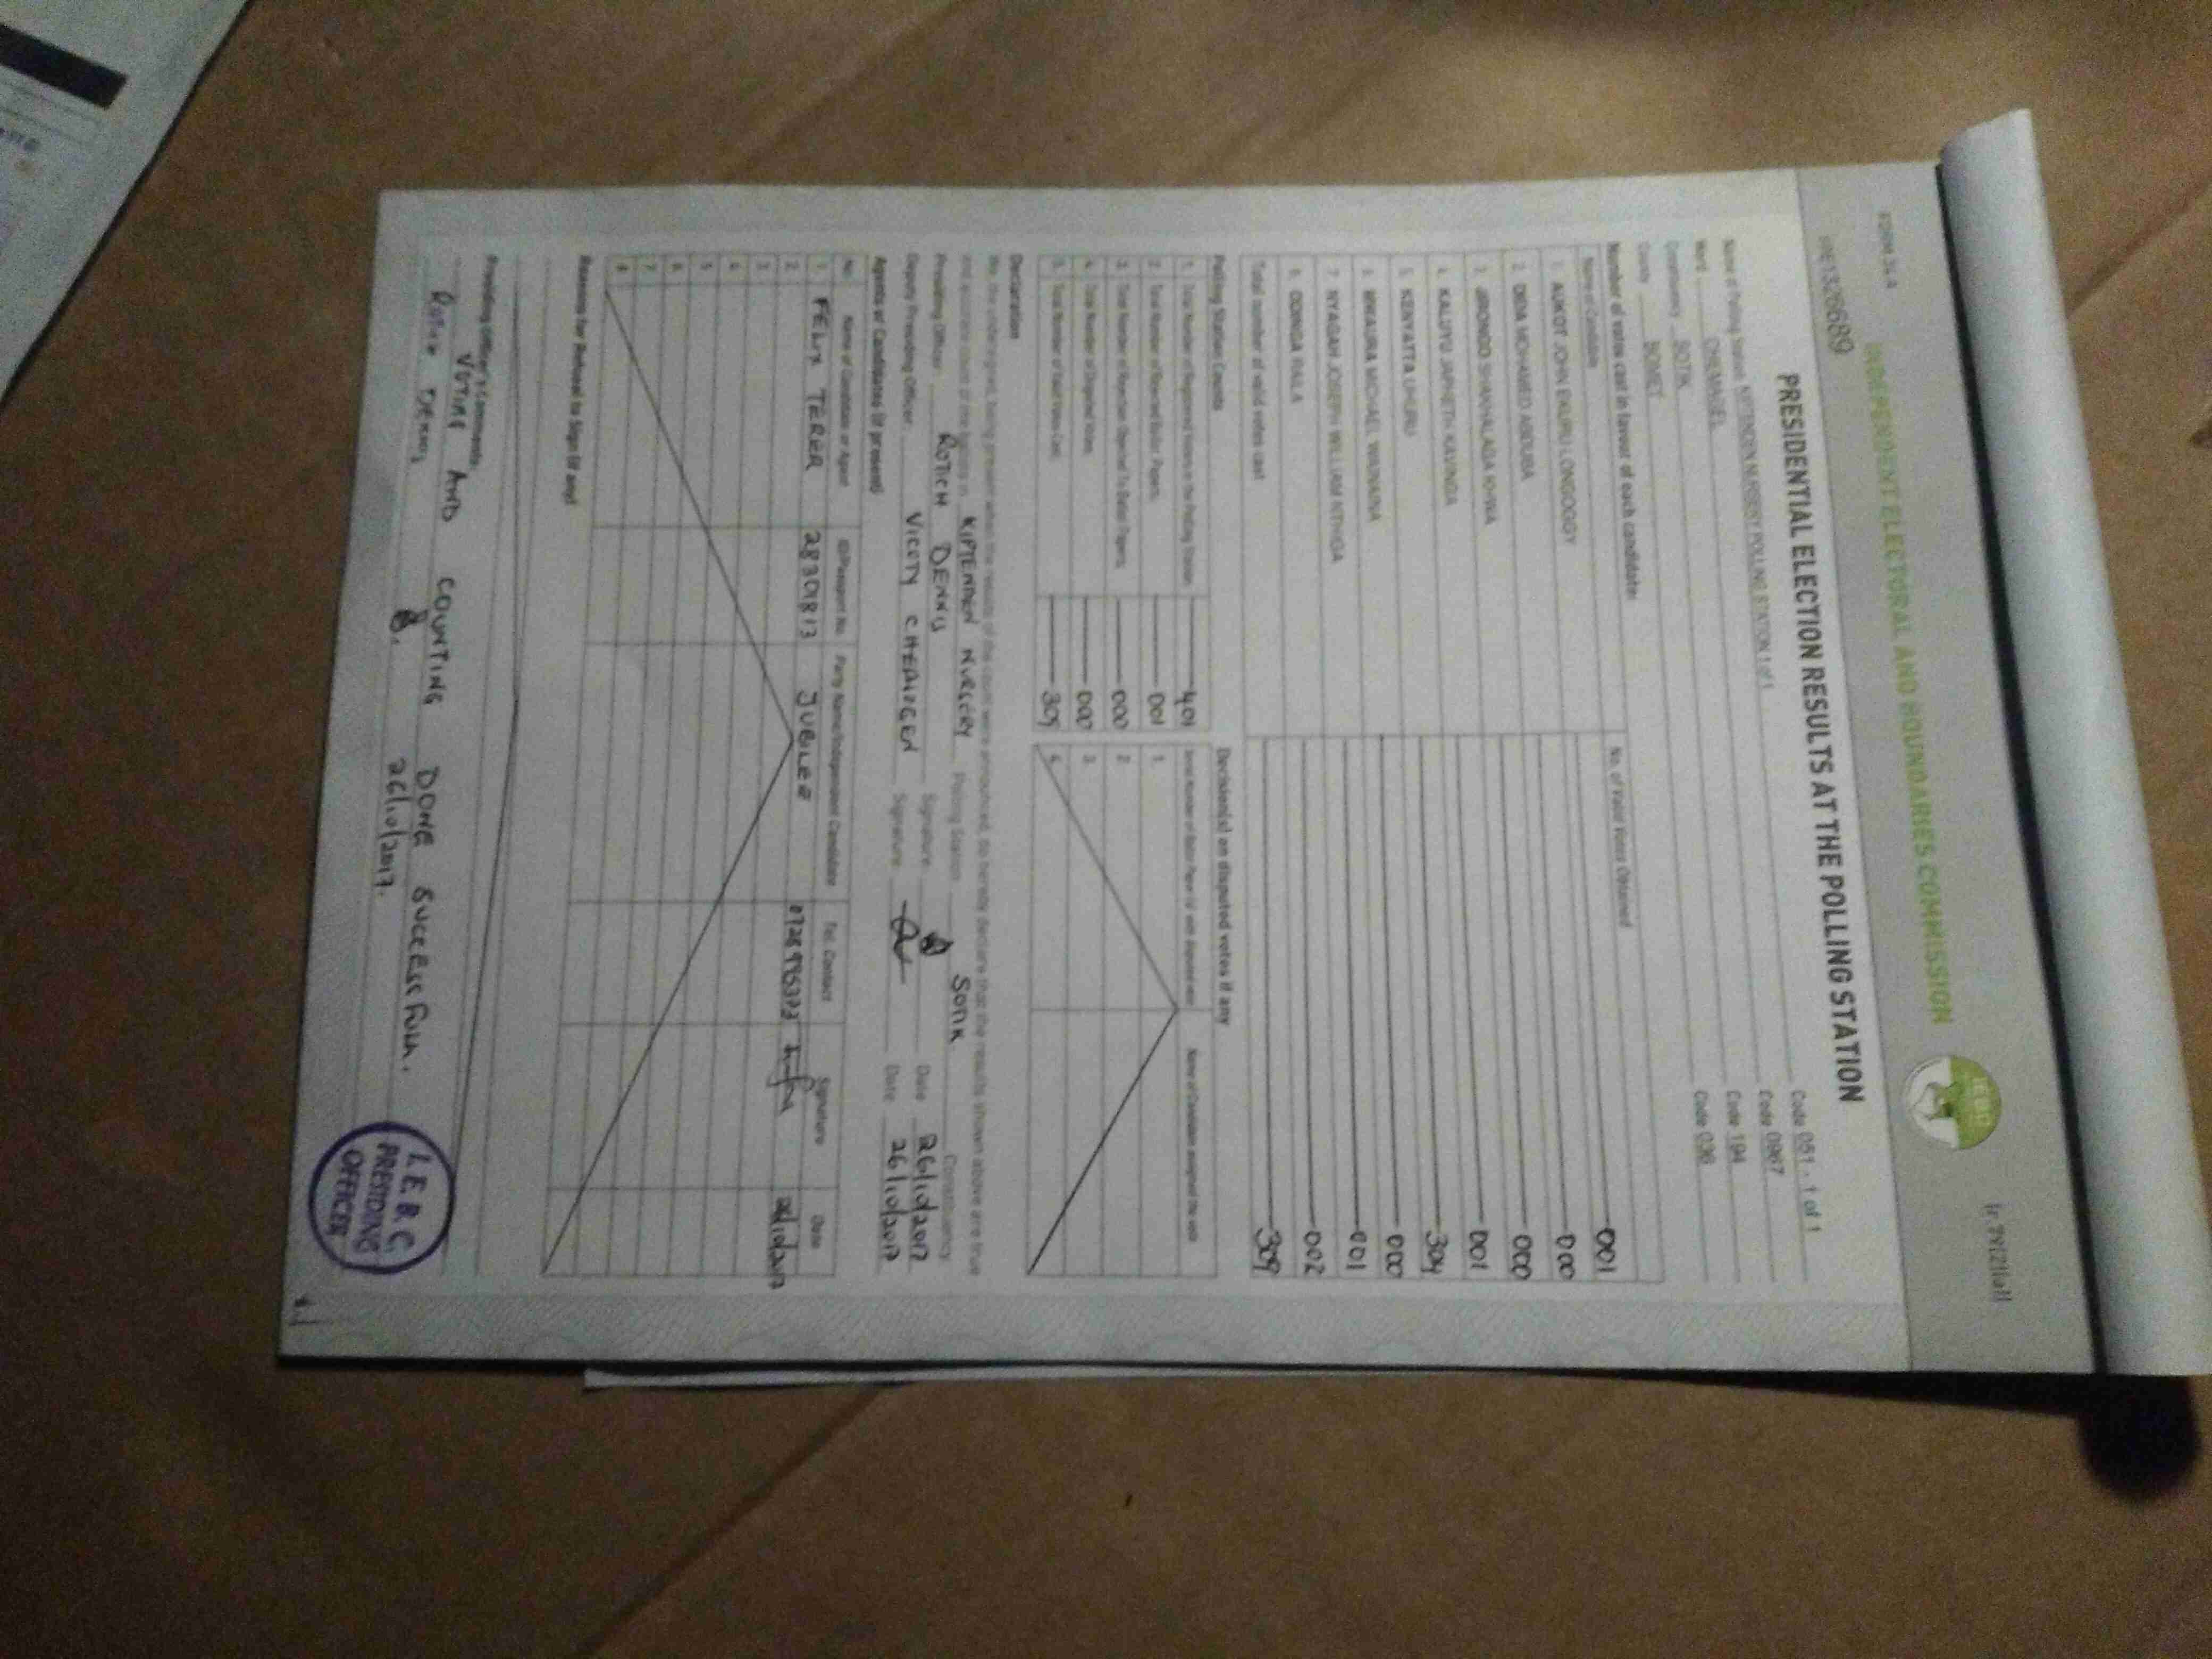 FORM 34A
INDEPENDENT ELECTORAL AND BOUNDARIES COMMISSION
IEBC
PRESIDENTIAL ELECTION RESULTS AT THE POLLING STATION
Name of Polling Station KIPTENDEN NURSERY POLLING STATION 1 of 1 Code 051 - 1 of 1
Ward CHEMAGEL Code 0967
Constituency SOTIK Code 194
County BOMET Code 036
Number of votes cast in favor of each candidate:
Name of Candidate No. of Valid Votes Obtained
1. AUKOT JOHN EKURU LONGOGGY 001
2. DIDA MOHAMED ABDUBA 000
3. JIRONGO SHAKHALAGA KHWA 000
4. KALUYU JAPHETH KAVINGA 001
5. KENYATTA UHURU 304
6. MWAURA MICHAEL WAINAINA 000
7. NYAGAH JOSEPH WILLIAM NTHIGA 001
8. ODINGA RAILA 002
Total number of valid votes cast 309
Polling Station Counts
1. Total Number of Registered Voters in the Polling Station 401
2. Total Number of Rejected Ballot Papers 001
3. Total Number of Rejection Objected To Ballot Papers 000
4. Total Number of Disputed Votes 000
5. Total Number of Valid Votes Cast 309
Decision(s) on disputed votes if any
1.
2.
3.
4.
Declaration
We, the undersigned, being present when the results of the count were announced, do hereby declare that the results shown above are true
and accurate count of the ballots in KIPTENDEN NURSERY Polling Station SOTIK Constituency
Presiding Officer ROTICH DENNIS Signature Date 26/10/2017
Deputy Presiding Officer VICOTY CHEPNGEN Signature Date 26/10/2017
Agents of Candidates (if present)
No. Name of Candidate or Agent ID/Passport No. Party Name/Independent Candidate Tel. Contact Signature Date
1. FELIX TERER 28301813 JUBILEE
2.
3.
4.
5.
6.
7.
8.
Reasons for Refusal to Sign (if any)
Presiding Officer's Comments:
VOTING AND COUNTING DONE SUCCESSFULLY.
ROTICH DENNIS 26/10/2017.
I.E.B.C.
PRESIDING
OFFICER